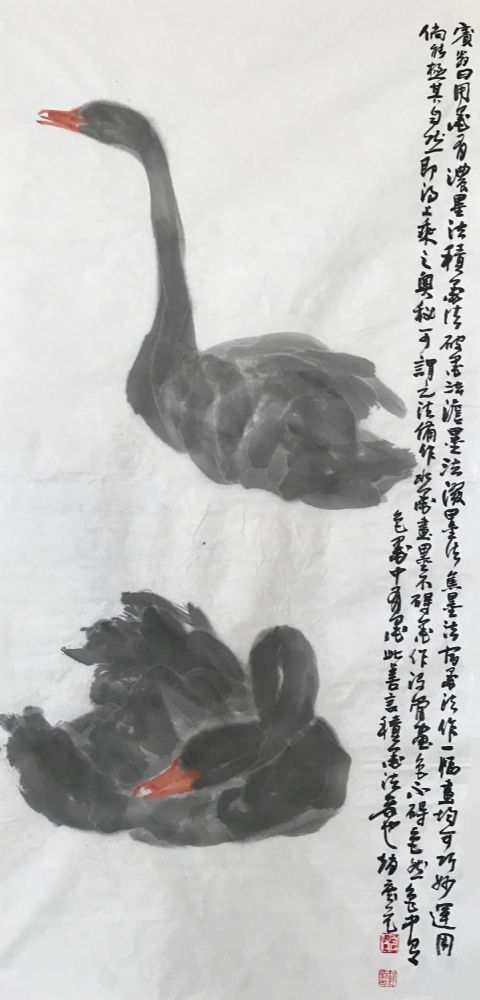 賓翁曰用墨有濃墨法積墨法破墨法澹墨法潑墨法焦墨法宿墨法作一幅畫均可巧妙運用
倘能極其自然即得上乘之奧秘可謂之法備作水墨畫墨不碍色作没骨畫色不碍墨然色中有
色墨中有墨此善言積墨法者也